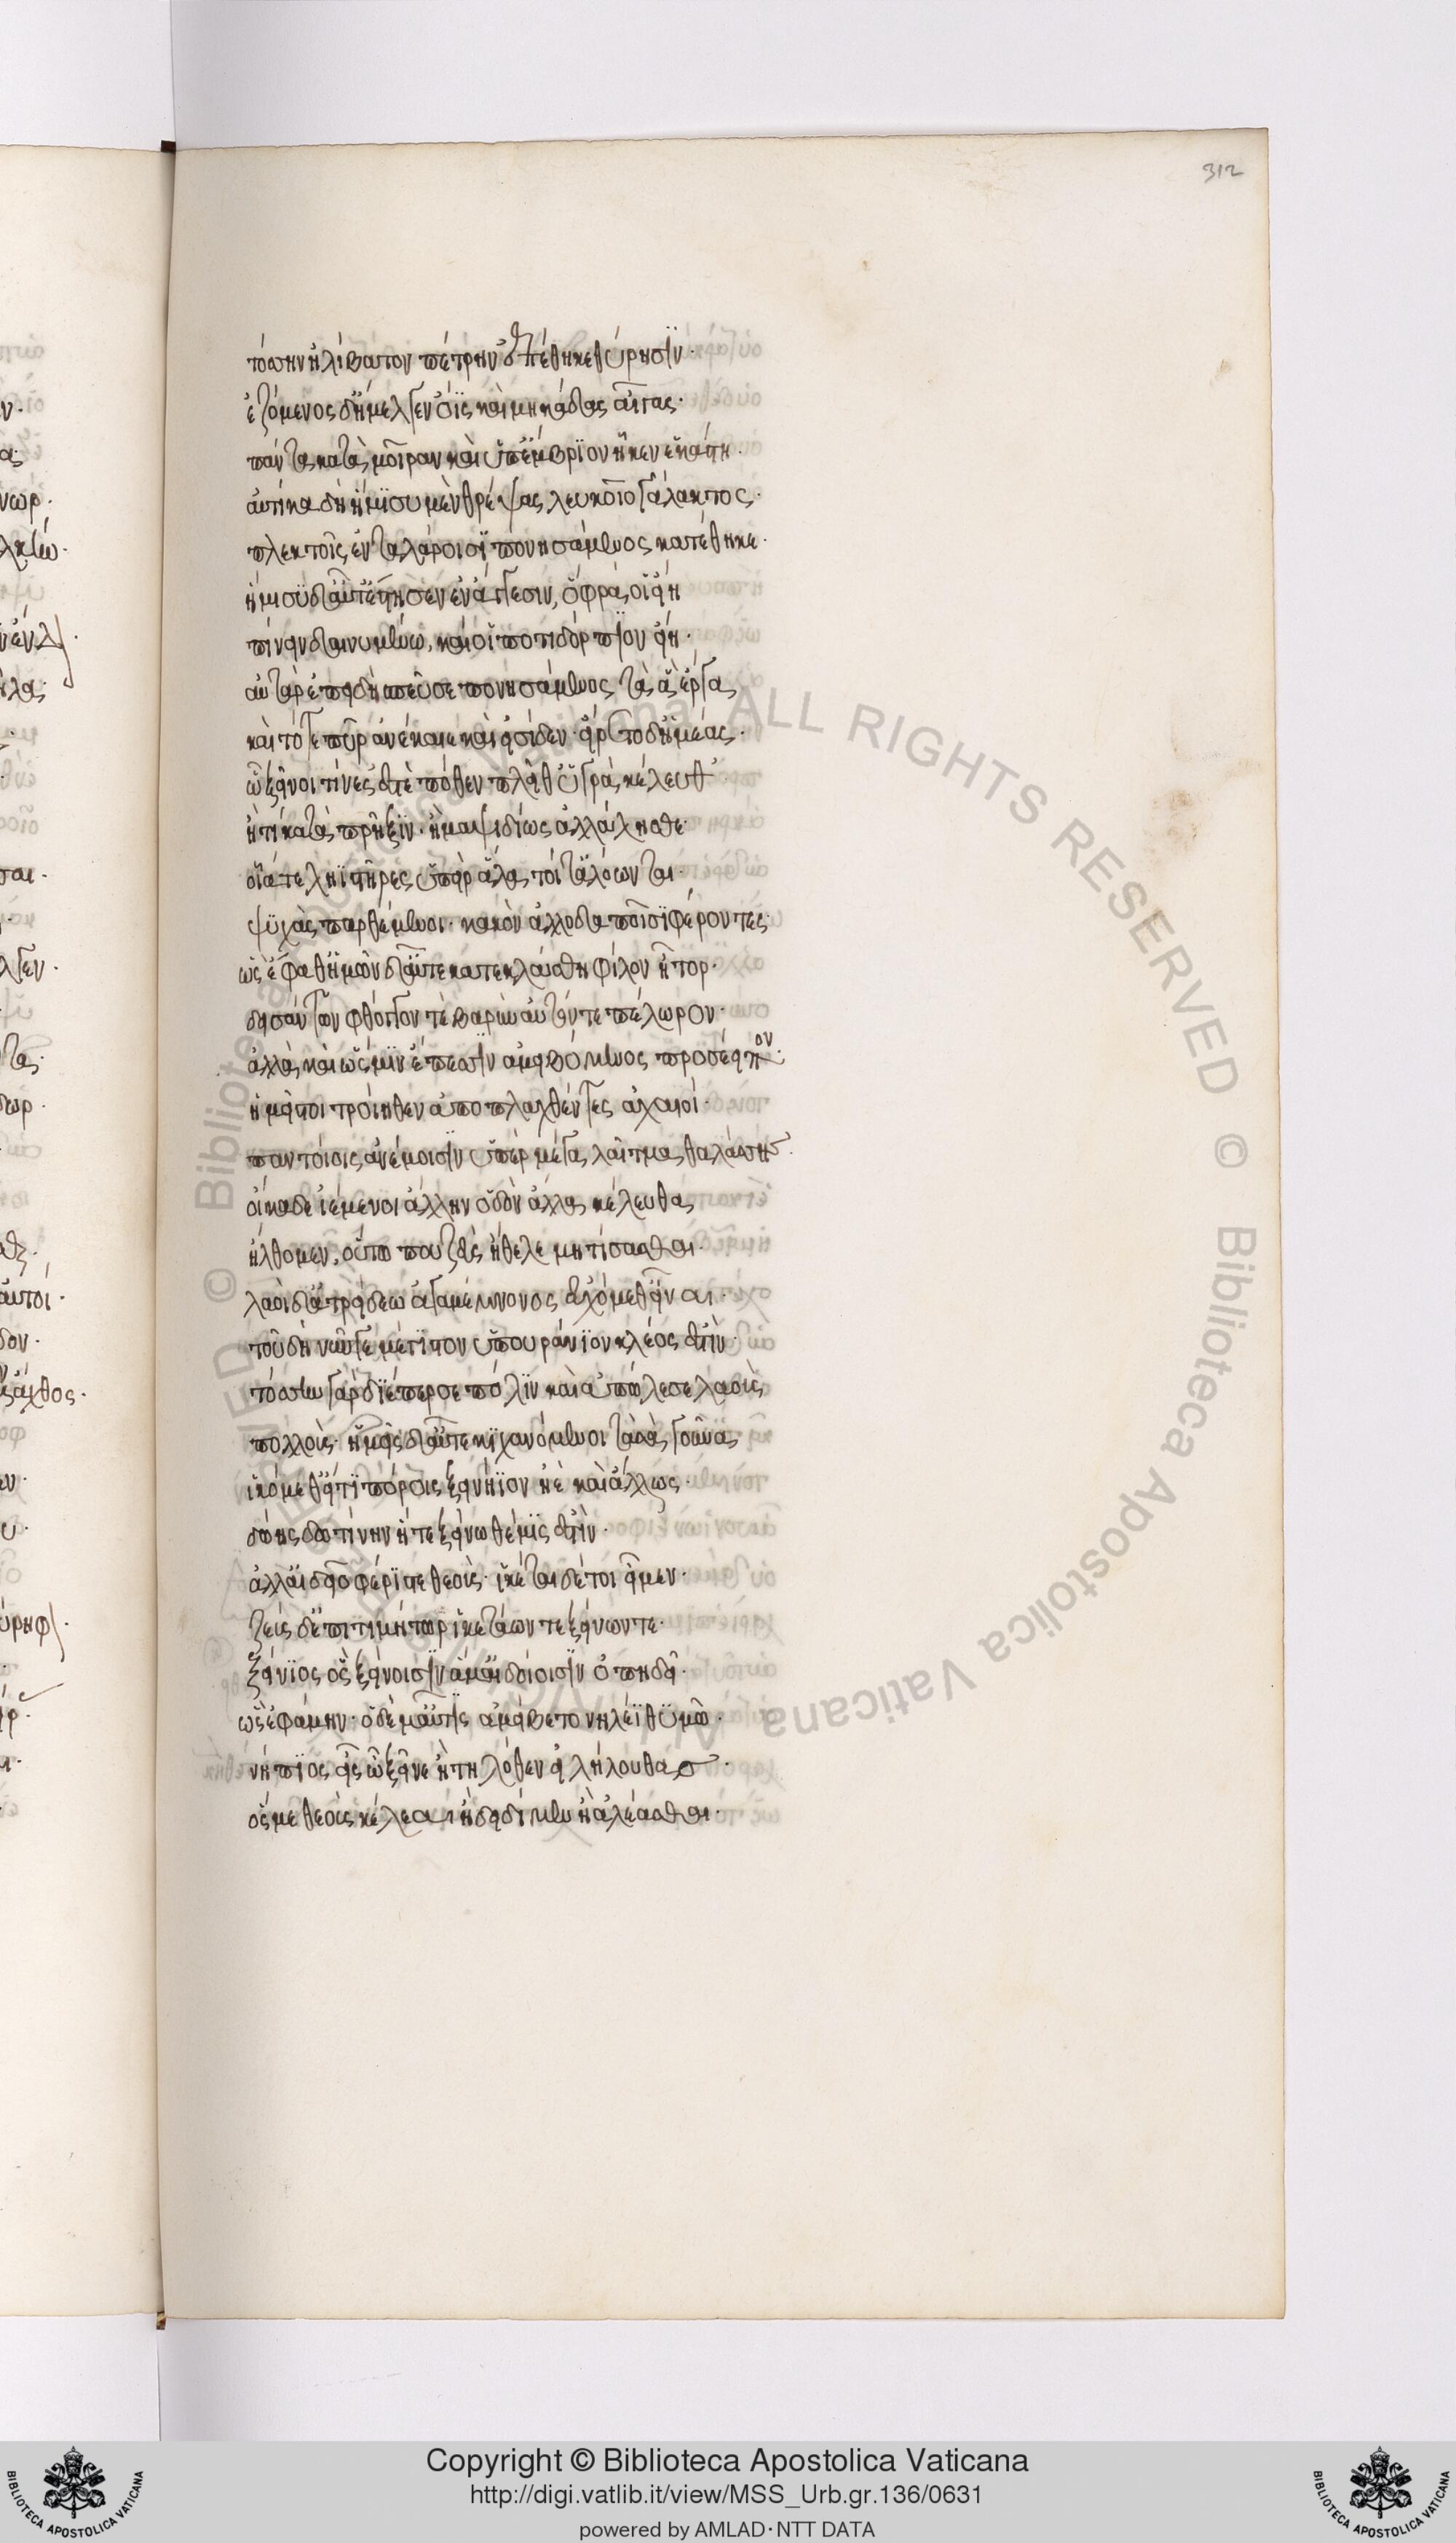 312
τόσσην ἠλίβατον πέτρην ἐπέθηκε θύρησϊν·
ἑζόμενος δ' ἤμελγεν ὄϊς καὶ μηκάδας αἶγας·
πάντα κατὰ μοῖραν καὶ ὑπ' ἔμβρϊον ἧκεν ἑκάστη·
αὐτίκα δ' ἥμϊσυ μὲν θρέψας λευκοῖο γάλακτος·
πλεκτοῖς ἐν ταλάροισϊ πονησάμενος κατέθηκε·
ἥμισϋ δ' αὖτ' ἔστησεν ἐν ἄγγεσιν, ὄφρά οἱ εἴη
πίνειν δαινυμένω, καί οἱ ποτιδόρπϊον εἴη·
αὐτὰρ ἐπειδὴ σπεῦσε πονησάμενος τὰ ἃ ἔργα
καὶ τότε πῦρ ἀνέκαιε καὶ εἴσϊδεν· εἴρετο δ' ἡμέας·
ὦ ξεῖνοι τίνες ἐστὲ πόθεν πλεῖθ' ὑγρὰ κέλευθ'
ἤ τι κατὰ πρῆξϊν· ἢ μαψιδίως ἀλάλησθε·
οἷά τε ληϊστῆρες ὑπεὶρ ἅλα, τοί τ' ἀλόωνται·
ψϋχὰς παρθέμενοι· κακὸν ἀλλοδαποῖσϊ φέροντες·
ὣς ἔφαθ' ἡμῖν δ' αὖτε κατεκλάσθη φίλον ἦτορ·
δεισάντων φθόγγόν τε βαρὺν αὐτόν τε πέλωρον·
ἀλλὰ καὶ ὧς μϊν ἔπεσσϊν ἀμειβόμενος προσέειπον·
ἡμεῖς τοι τροίηθεν ἀποπλαγχθέντες ἀχαιοὶ·
παντοίοις ἀνέμοισϊν ὑπὲρ μέγα λαῖτμα θαλάσσης·
οἴκαδε ἱέμενοι ἄλλην ὁδὸν ἄλλα κέλευθα
ἤλθομεν, οὕτω που ζεὺς ἤθελε μητίσασθαι·
λαοὶ δ' ἀτρείδεω ἀγαμέμνονος εὐχόμεθ' εἶναι·
τοῦ δὴ νῦν γε μέγϊστον ὑπουράνϊον κλέος ἐστὶν·
τόσσην γὰρ δϊέπερσε πόλϊν καὶ ἀπώλεσε λαοὺς
πολλοὺς· ἡμεῖς δ' αὖτε κϊχανόμενοι τὰ σὰ γοῦνα
ἱκόμεθ' εἴ τϊ πόροις ξεινήϊον ἠὲ καὶ ἄλλως·
δώης δωτίνην ἥτε ξείνω θέμϊς ἐστὶν·
ἀλλ' αἰδεῖο φέρϊστε θεοὺς· ἱκέται δέ τοι εἶμεν·
ζεὺς δ' ἐπιτιμήτωρ ἱκετάων τε ξείνων τε·
ξείνϊος ὃς ξείνοισϊν ἅμ' αἰδοίοισϊν ὀπηδεῖ·
ὣς ἐφάμην· ὁ δέ μ' αὖτϊς ἀμείβετο νηλέϊ θϋμῶ·
νήπϊος εἶς ὦ ξεῖνε ἢ τηλόθεν εἰλήλουθας·
ὅς με θεοὺς κέλεαι ἢ δειδίμεν ἢ ἀλέασθαι·
Copyright © Biblioteca Apostolica Vaticana
http://digi.vatlib.it/view/MSS_Urb.gr.136/0631
powered by AMLAD·NTT DATA